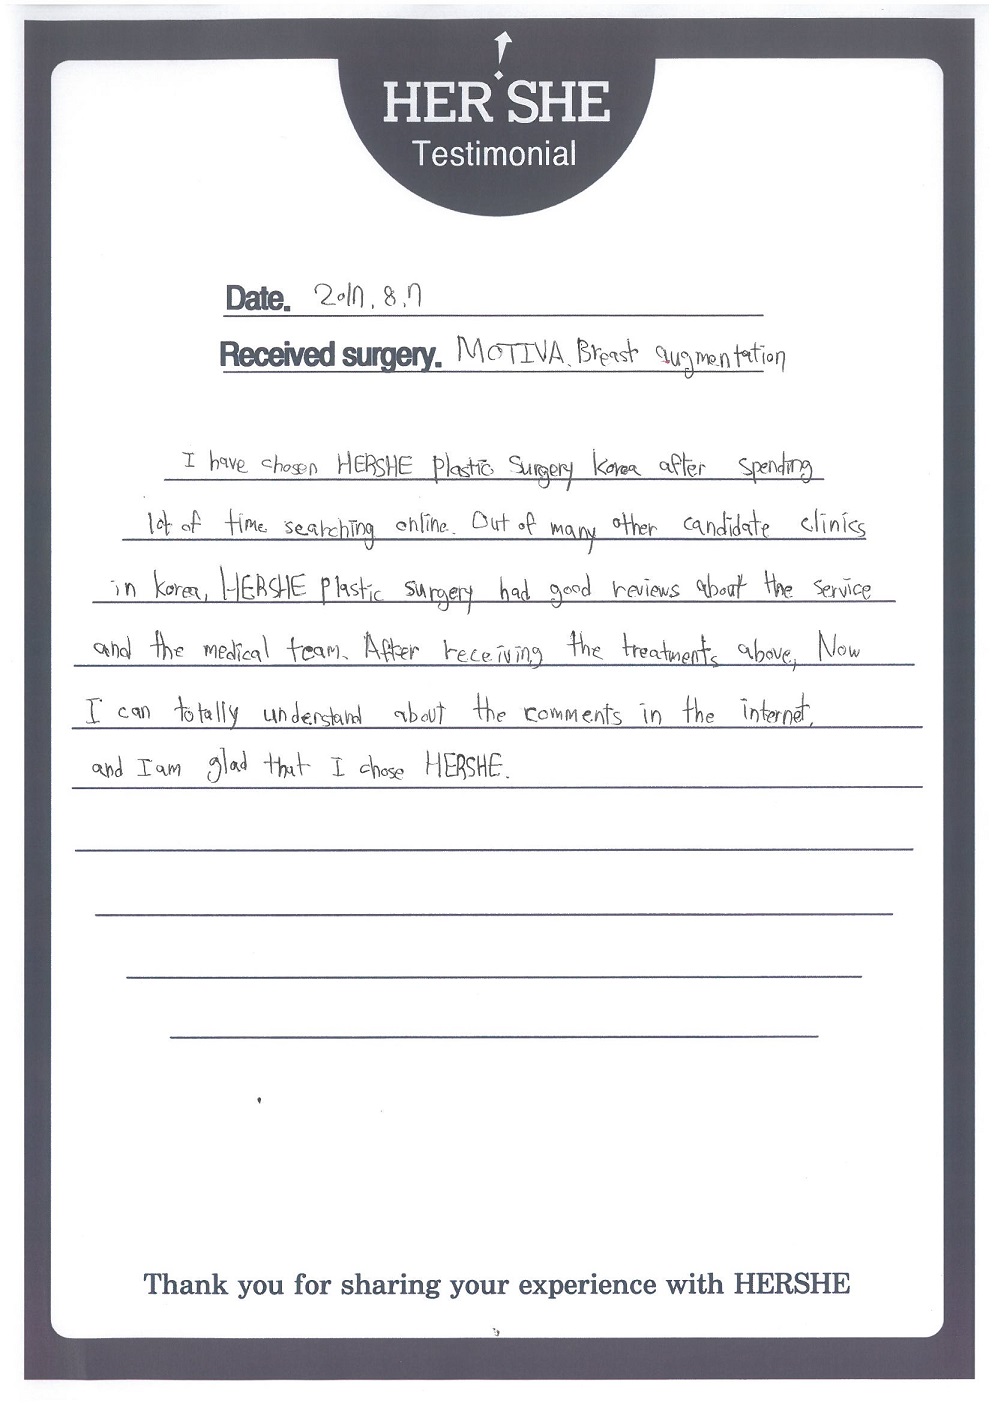 HER SHE
Testimonial
Date. 2017. 8. 7
Received surgery. MOTIVA. Breast augmentation
I have chosen HERSHE Plastic Surgery Korea after spending
lot of time searching online. Out of many other candidate clinics
in Korea, HERSHE plastic surgery had good reviews about the service
and the medical team. After receiving the treatments above, Now
I can totally understand about the comments in the internet,
and I am glad that I chose HERSHE.
Thank you for sharing your experience with HERSHE